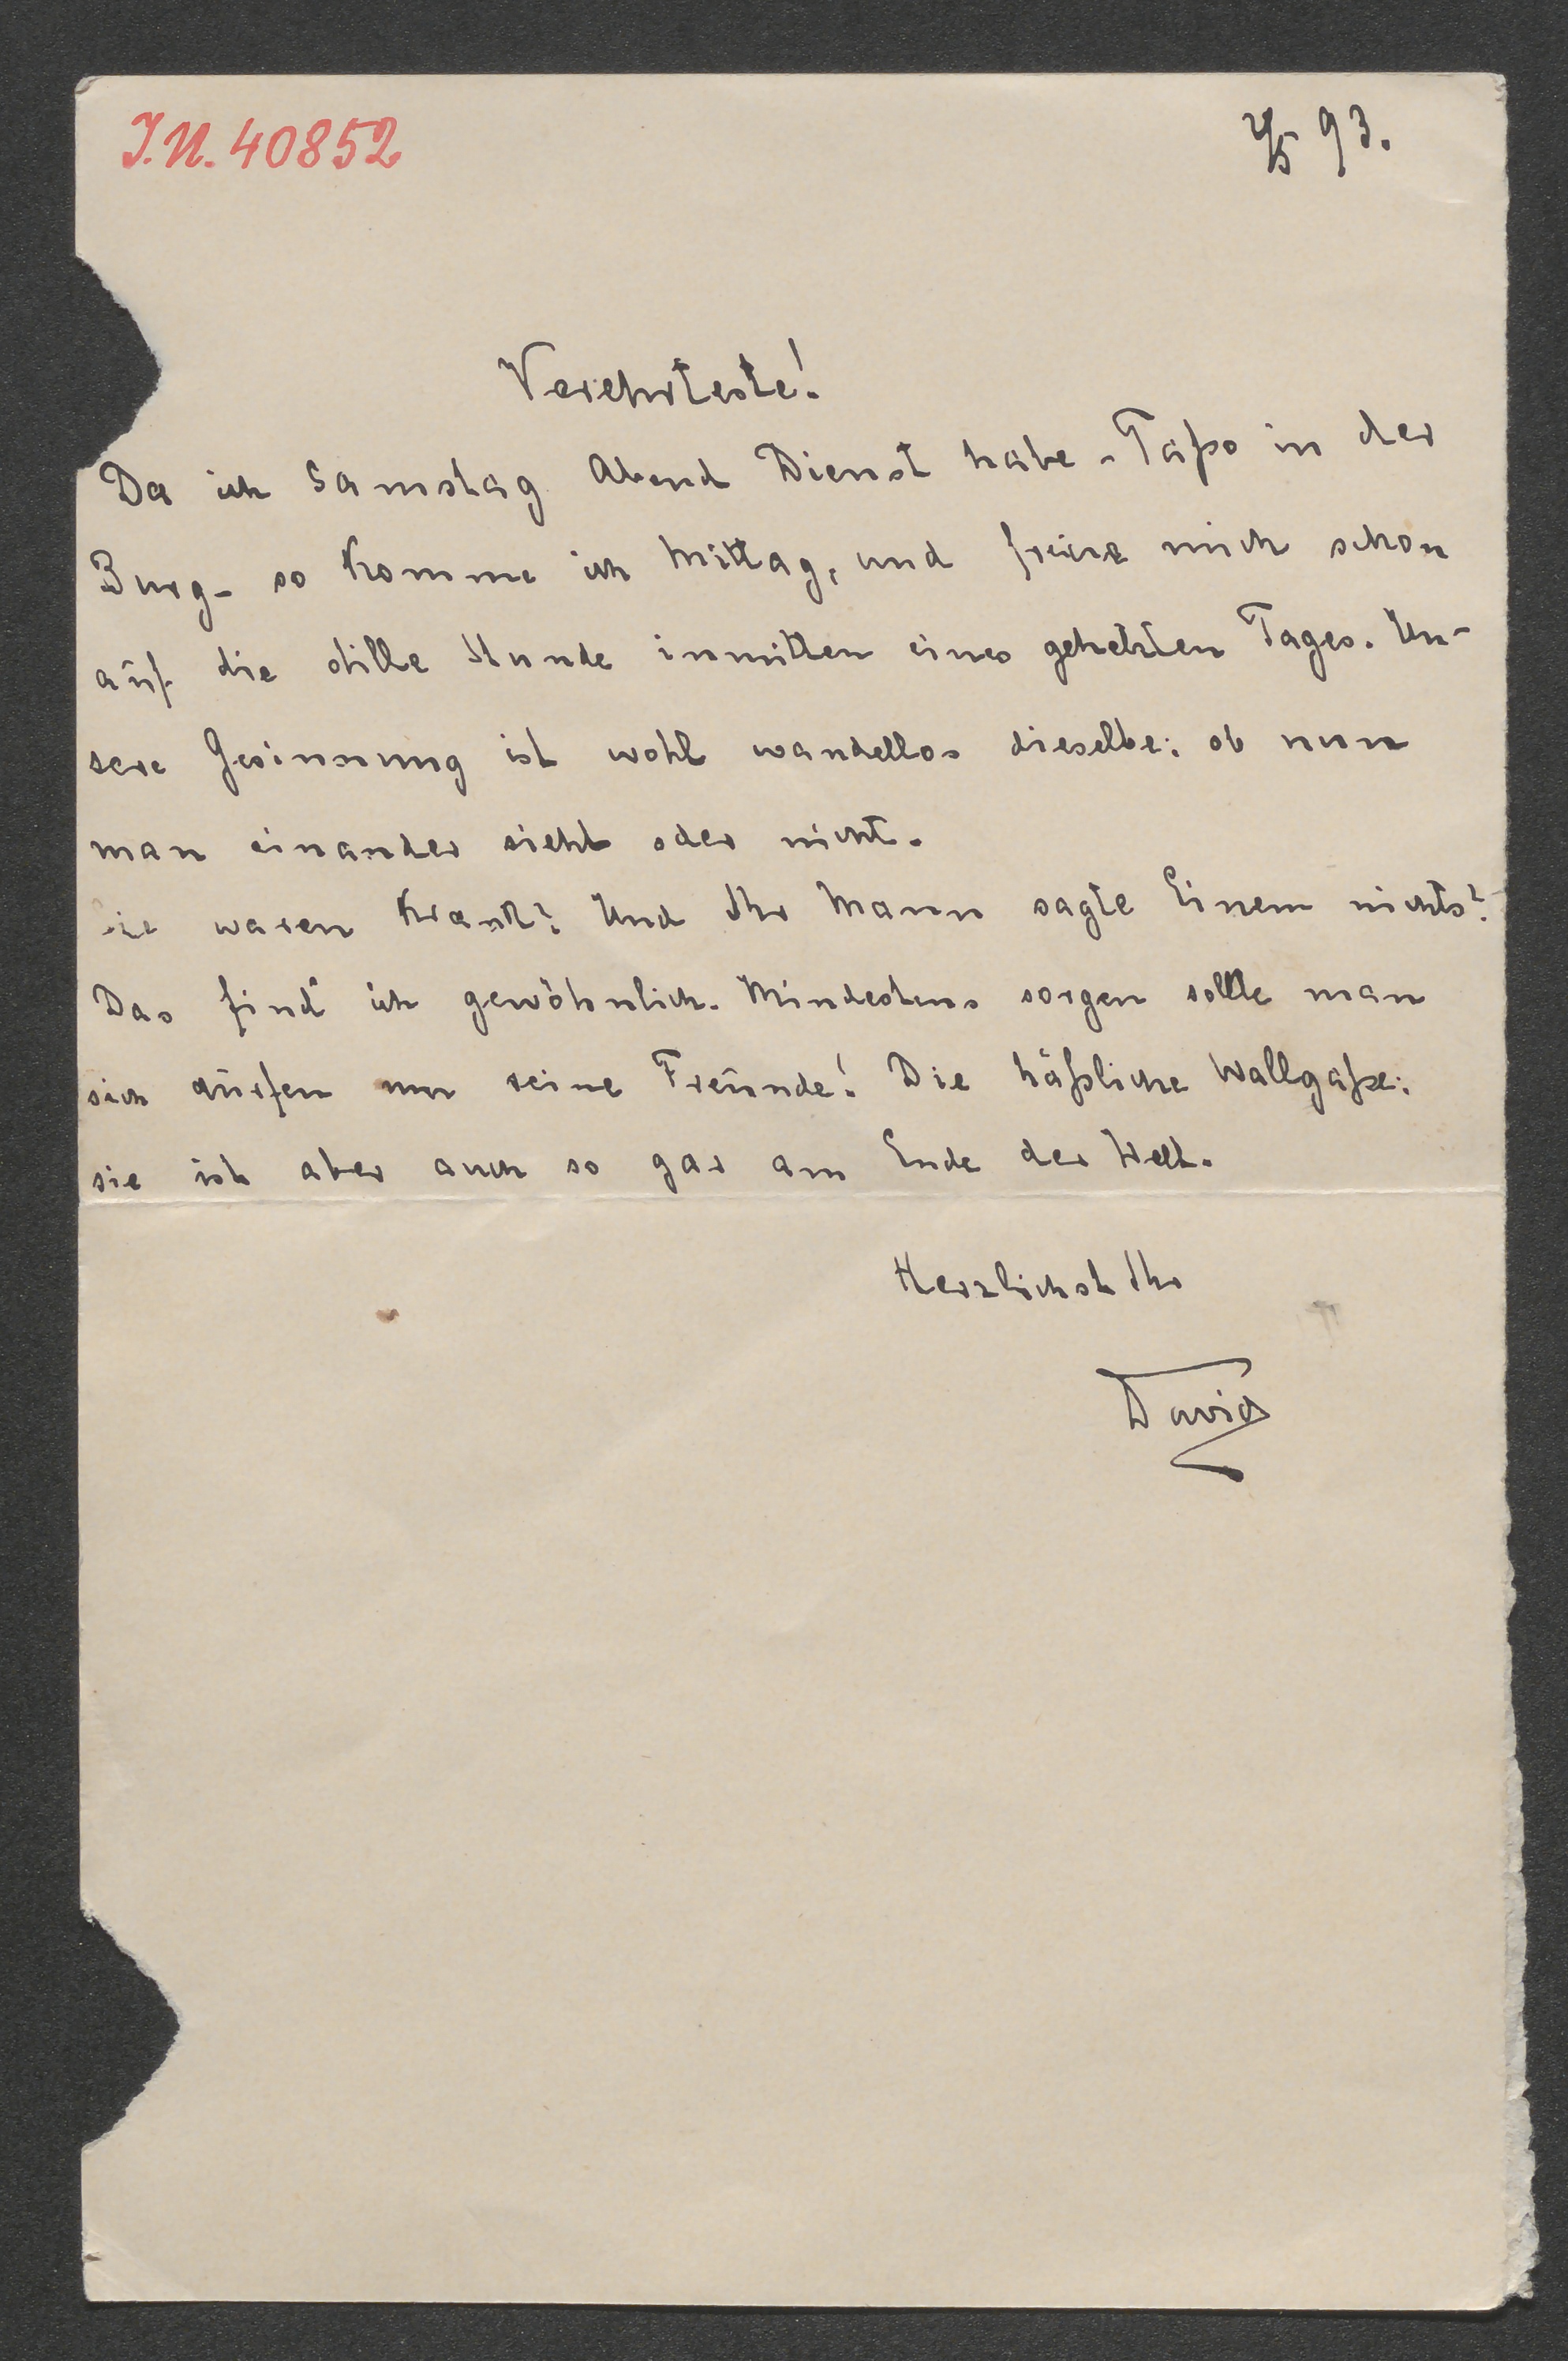 I.N. 40852
4/5 93.
Verehrteste!
Da ich Samstag Abend Dienst habe - Taßo in der
Burg - so komme ich Mittag, und freue mich schon
auf die stille Stunde inmitten eines gehetzten Tages. Un-
sere Gesinnung ist wohl wandellos dieselbe: ob nun
man einander sieht oder nicht.
Sie waren krank? Und Ihr Mann sagte Einem nichts?
Das find' ich gewöhnlich. Mindestens sorgen sollte man
sich dürfen um seine Freunde! Die häßliche Wallgaße:
sie ist aber auch so gar am Ende der Welt.
Herzlichst Ihr
David